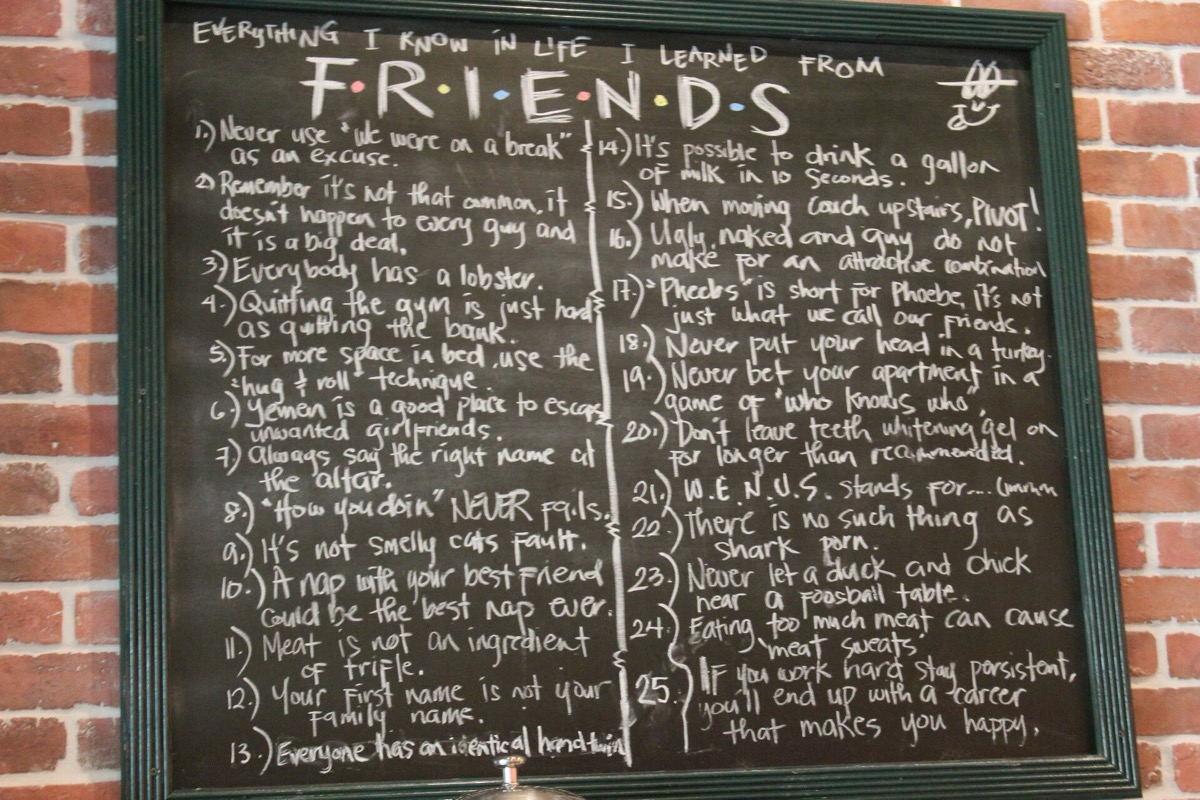 EVERYTHING I KNOW IN LIFE I LEARNED FROM
F·R·I·E·N·D·S
1.) Never use "we were on a break"
as an excuse.
2) Remember it's not that common, it
doesn't happen to every guy and
it is a big deal.
3.) Everybody has a lobster.
4.) Quitting the gym is just hard
as quitting the bank.
5.) For more space in bed, use the
"hug & roll" technique.
6.) Yemen is a good place to escape
unwanted girlfriends.
7.) Always say the right name at
the altar.
8.) "How you doin" NEVER fails.
9.) It's not smelly cats fault.
10.) A nap with your best friend
could be the best nap ever.
11.) Meat is not an ingredient
of trifle.
12.) Your First name is not your
family name.
13.) Everyone has an identical hand twin
14.) It's possible to drink a gallon
of milk in 10 seconds.
15.) When moving couch upstairs, PIVOT!
16.) Ugly, naked and guy do not
make for an attractive combination
17.) "Pheebs" is short for Phoebe, it's not
just what we call our friends.
18.) Never put your head in a turkey.
19.) Never bet your apartment in a
game of "who knows who".
20.) Don't leave teeth whitening gel on
for longer than recommended.
21.) W.E.N.U.S. stands for....
22.) There is no such thing as
shark porn.
23.) Never let a duck and chick
near a foosball table.
24.) Eating too much meat can cause
'meat sweats'
25.) If you work hard stay persistent,
you'll end up with a career
that makes you happy.